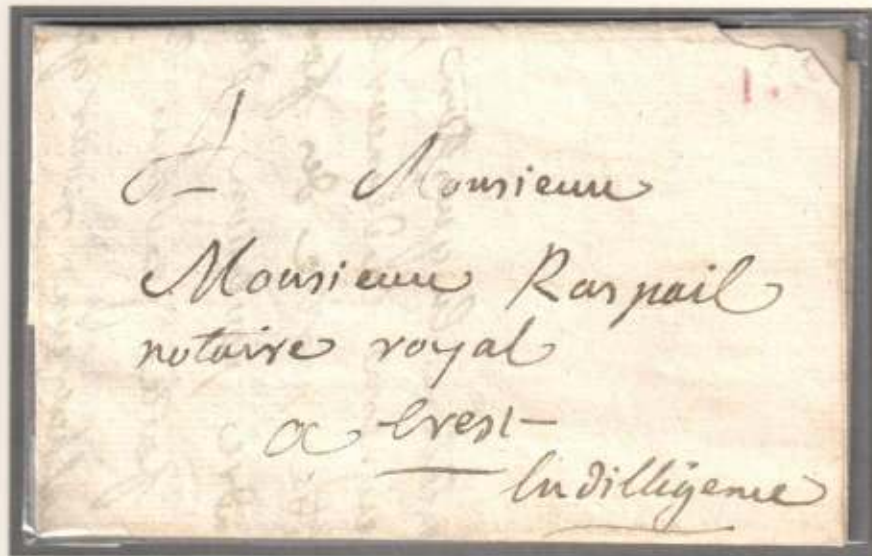 A Monsieur
Monsieur Raspail
notaire royal
a Crest
En dilligence